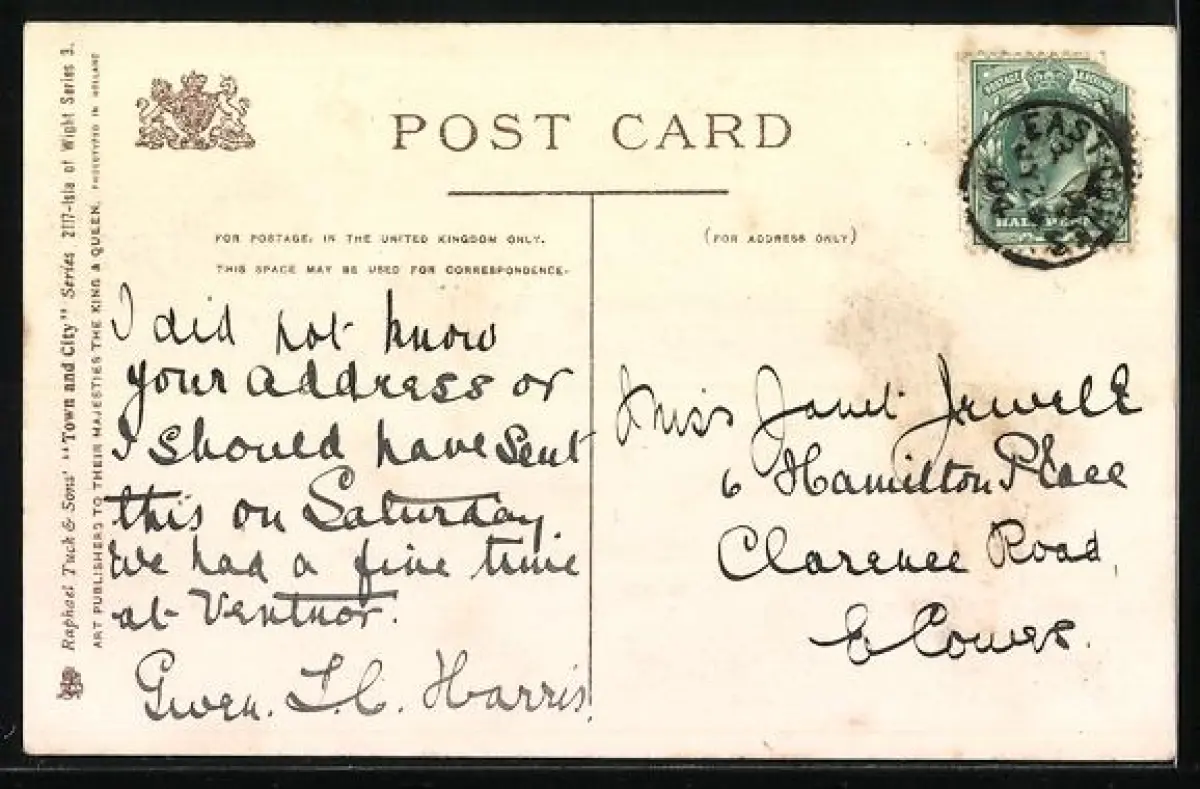 POST CARD
FOR POSTAGE, IN THE UNITED KINGDOM ONLY.
THIS SPACE MAY BE USED FOR CORRESPONDENCE.
(FOR ADDRESS ONLY)
I did not know
your address or
I should have sent
this on Saturday
We had a fine time
at Ventnor.
Gwen. L. C. Harris.
Miss Janet Jewell
6 Hamilton Place
Clarence Road,
E Cowes.
POSTAGE REVENUE
HALF PENNY
EAST COWES
Raphael Tuck & Sons' "Town and City" Series 2117-Isle of Wight Series 3.
ART PUBLISHERS TO THEIR MAJESTIES THE KING & QUEEN. PHOTOTYPED IN HOLLAND